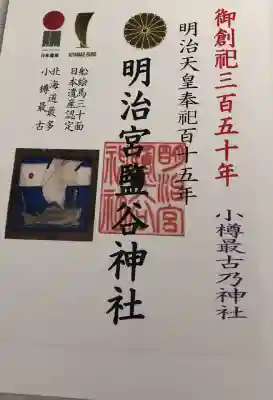 御創祀三百五十年
小樽最古乃神社
明治天皇奉祀百十五年
明治宮鹽谷神社
明治宮
KITAMAE-BUNE
日本遺産
船絵馬三十面
日本遺産認定
北海道最多
小樽最古